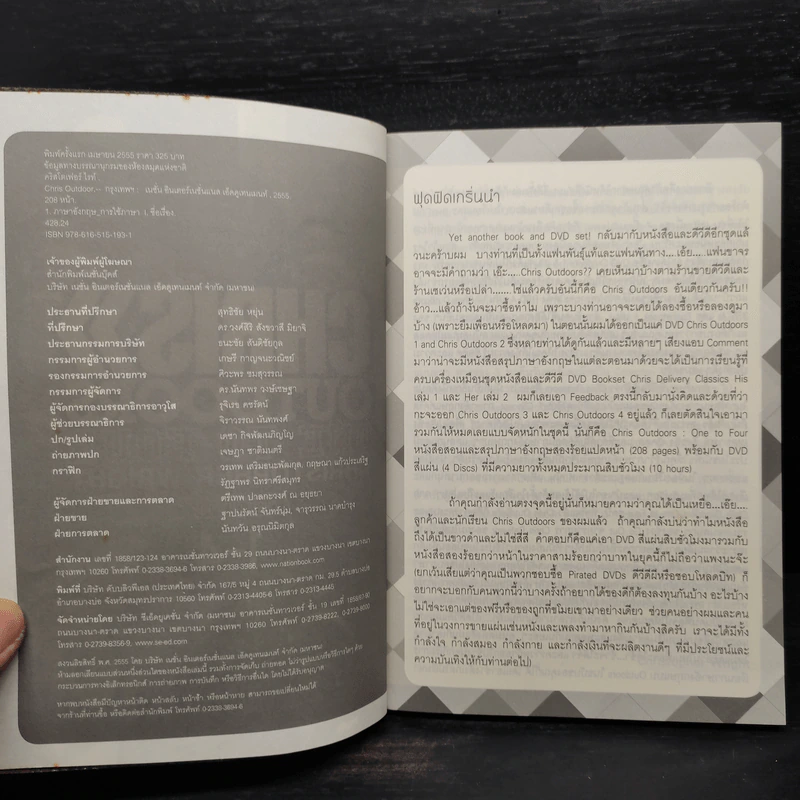 พิมพ์ครั้งแรก เมษายน 2555 ราคา 325 บาท
ข้อมูลทางบรรณานุกรมของห้องสมุดแห่งชาติ
คริสโตเฟอร์ ไรท์
Chris Outdoor.-- กรุงเทพฯ : เนชั่น อินเตอร์เนชั่นแนล เอ็ดดูเทนเมนท์ , 2555.
208 หน้า.
1. ภาษาอังกฤษ_การใช้ภาษา I. ชื่อเรื่อง.
428.24
ISBN 978-616-515-193-1
เจ้าของผู้พิมพ์ผู้โฆษณา
สำนักพิมพ์เนชั่นบุ๊คส์
บริษัท เนชั่น อินเตอร์เนชั่นแนล เอ็ดดูเทนเมนท์ จำกัด (มหาชน)
ประธานที่ปรึกษา สุทธิชัย หยุ่น
ที่ปรึกษา ดร.วงศ์สิริ สังขวาสี มิยาจิ
ประธานกรรมการบริษัท ธนะชัย สันติชัยกูล
กรรมการผู้อำนวยการ เกษรี กาญจนะวณิชย์
รองกรรมการอำนวยการ ศิวะพร ชมสุวรรณ
กรรมการผู้จัดการ ดร.นันทพร วงษ์เชษฐา
ผู้จัดการกองบรรณาธิการอาวุโส รุจิเรข คชรัตน์
ผู้ช่วยบรรณาธิการ จิราวรรณ นันทพงศ์
ปก/รูปเล่ม เดชา กิจพัฒเภิญโญ
ถ่ายภาพปก เจษฎา ชาติมนตรี
กราฟิก วรเทพ เสริมธนะพัฒกุล, กฤษณา แก้วประเสริฐ
รัฏฐาพร นิทราศรีสมุทร
ผู้จัดการฝ่ายขายและการตลาด ตรีเทพ ปาลกะวงศ์ ณ อยุธยา
ฝ่ายขาย ฐาปนรัตน์ จันทร์นุ่ม, จารุวรรณ นาคบำรุง
ฝ่ายการตลาด นันทวัน อรุณนิมิตกุล
สำนักงาน เลขที่ 1858/123-124 อาคารเนชั่นทาวเวอร์ ชั้น 29 ถนนบางนา-ตราด แขวงบางนา เขตบางนา
กรุงเทพฯ 10260 โทรศัพท์ 0-2338-3694-8 โทรสาร 0-2338-3986, www.nationbook.com
พิมพ์ที่ บริษัท ดับบลิวพีเอส (ประเทศไทย) จำกัด 167/5 หมู่ 4 ถนนบางนา-ตราด กม. 29.5 ตำบลบางบ่อ
อำเภอบางบ่อ จังหวัดสมุทรปราการ 10560 โทรศัพท์ 0-2313-4405-6 โทรสาร 0-2313-4445
จัดจำหน่ายโดย บริษัท ซีเอ็ดยูเคชั่น จำกัด (มหาชน) อาคารเนชั่นทาวเวอร์ ชั้น 19 เลขที่ 1858/87-90
ถนนบางนา-ตราด แขวงบางนา เขตบางนา กรุงเทพฯ 10260 โทรศัพท์ 0-2739-8222, 0-2739-8000
โทรสาร 0-2739-8356-9, www.se-ed.com
สงวนลิขสิทธิ์ พ.ศ. 2555 โดย บริษัท เนชั่น อินเตอร์เนชั่นแนล เอ็ดดูเทนเมนท์ จำกัด (มหาชน)
ห้ามลอกเลียนแบบส่วนหนึ่งส่วนใดของหนังสือเล่มนี้ รวมทั้งการจัดเก็บ ถ่ายทอด ไม่ว่ารูปแบบหรือวิธีการใดๆ ด้วย
กระบวนการทางอิเล็กทรอนิกส์ การถ่ายภาพ การบันทึก หรือวิธีการอื่นใด โดยไม่ได้รับอนุญาต
หากพบหนังสือมีปัญหาหน้าติด หน้าสลับ หน้าซ้ำ หรือหน้าหาย สามารถขอเปลี่ยนใหม่ได้
จากร้านที่ท่านซื้อ หรือติดต่อสำนักพิมพ์ โทรศัพท์ 0-2338-3694-8
ฟุดฟิดเกริ่นนำ
Yet another book and DVD set! กลับมากับหนังสือและดีวีดีอีกชุดแล้
วนะคร้าบผม บางท่านที่เป็นทั้งแฟนพันธุ์แท้และแฟนพันทาง...เอ้ย....แฟนขาจร
อาจจะมีคำถามว่า เอ๊ะ....Chris Outdoors?? เคยเห็นมาบ้างตามร้านขายดีวีดีและ
ร้านเซเว่นหรือเปล่า.......ใช่แล้วครับอันนี้ก็คือ Chris Outdoors อันเดียวกันครับ!!
อ้าว...แล้วถ้างั้นจะมาซื้อทำไม เพราะบางท่านอาจจะเคยได้ลองซื้อหรือลองดูมา
บ้าง (เพราะยืมเพื่อนหรือโหลดมา) ในตอนนั้นผมได้ออกเป็นแค่ DVD Chris Outdoors
1 and Chris Outdoors 2 ซึ่งหลายท่านได้ดูกันแล้วและมีหลายๆ เสียงแอบ Comment
มาว่าน่าจะมีหนังสือสรุปภาษาอังกฤษในแต่ละตอนมาด้วยจะได้เป็นการเรียนรู้ที่
ครบเครื่องเหมือนชุดหนังสือและดีวีดี DVD Bookset Chris Delivery Classics His
เล่ม 1 และ Her เล่ม 2 ผมก็เลยเอา Feedback ตรงนี้กลับมานั่งคิดและด้วยที่ว่า
กะจะออก Chris Outdoors 3 และ Chris Outdoors 4 อยู่แล้ว ก็เลยตัดสินใจเอามา
รวมกันให้หมดเลยแบบจัดหนักในชุดนี้ นั่นก็คือ Chris Outdoors : One to Four
หนังสือสอนและสรุปภาษาอังกฤษสองร้อยแปดหน้า (208 pages) พร้อมกับ DVD
สี่แผ่น (4 Discs) ที่มีความยาวทั้งหมดประมาณสิบชั่วโมง (10 hours)
ถ้าคุณกำลังอ่านตรงจุดนี้อยู่นั่นก็หมายความว่าคุณได้เป็นเหยื่อ...เอ๊ย....
ลูกค้าและนักเรียน Chris Outdoors ของผมแล้ว ถ้าคุณกำลังบ่นว่าทำไมหนังสือ
ถึงได้เป็นขาวดำและไม่ใช่สี่สี คำตอบก็คือแค่เอา DVD สี่แผ่นสิบชั่วโมงมารวมกับ
หนังสือสองร้อยกว่าหน้าในราคาสามร้อยกว่าบาทในยุคนี้ก็ไม่ถือว่าแพงนะจ๊ะ
(ยกเว้นเสียแต่ว่าคุณเป็นพวกชอบซื้อ Pirated DVDs ดีวีดีผีหรือชอบโหลดบิท) ก็
อยากจะบอกกับคนพวกนี้ว่าบางครั้งถ้าอยากได้ของดีก็ต้องลงทุนกันบ้าง อะไรบ้าง
ไม่ใช่จะเอาแต่ของฟรีหรือของถูกที่ขโมยเขามาอย่างเดียว ช่วยคนอย่างผมและคน
ที่อยู่ในวงการขายแผ่นเช่นหนังและเพลงทำมาหากินกันบ้างสิครับ เราจะได้มีทั้ง
กำลังใจ กำลังสมอง กำลังกาย และกำลังเงินที่จะผลิตงานดีๆ ที่มีประโยชน์และ
ความบันเทิงให้กับท่านต่อไป)